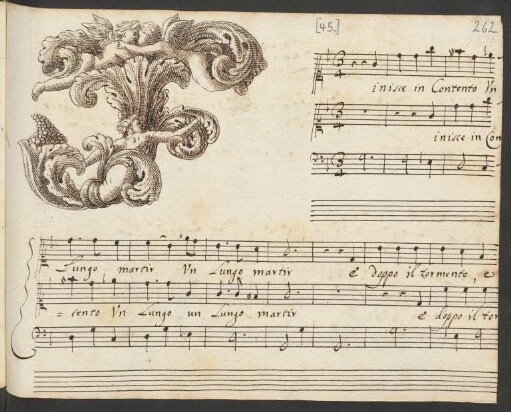 [45.] 262
inisce in Contento Vn
inisce in Con
Lungo martir Vn Lungo martir e Doppo il tormento e
=tento Vn Lungo un Lungo martir e doppo il tor